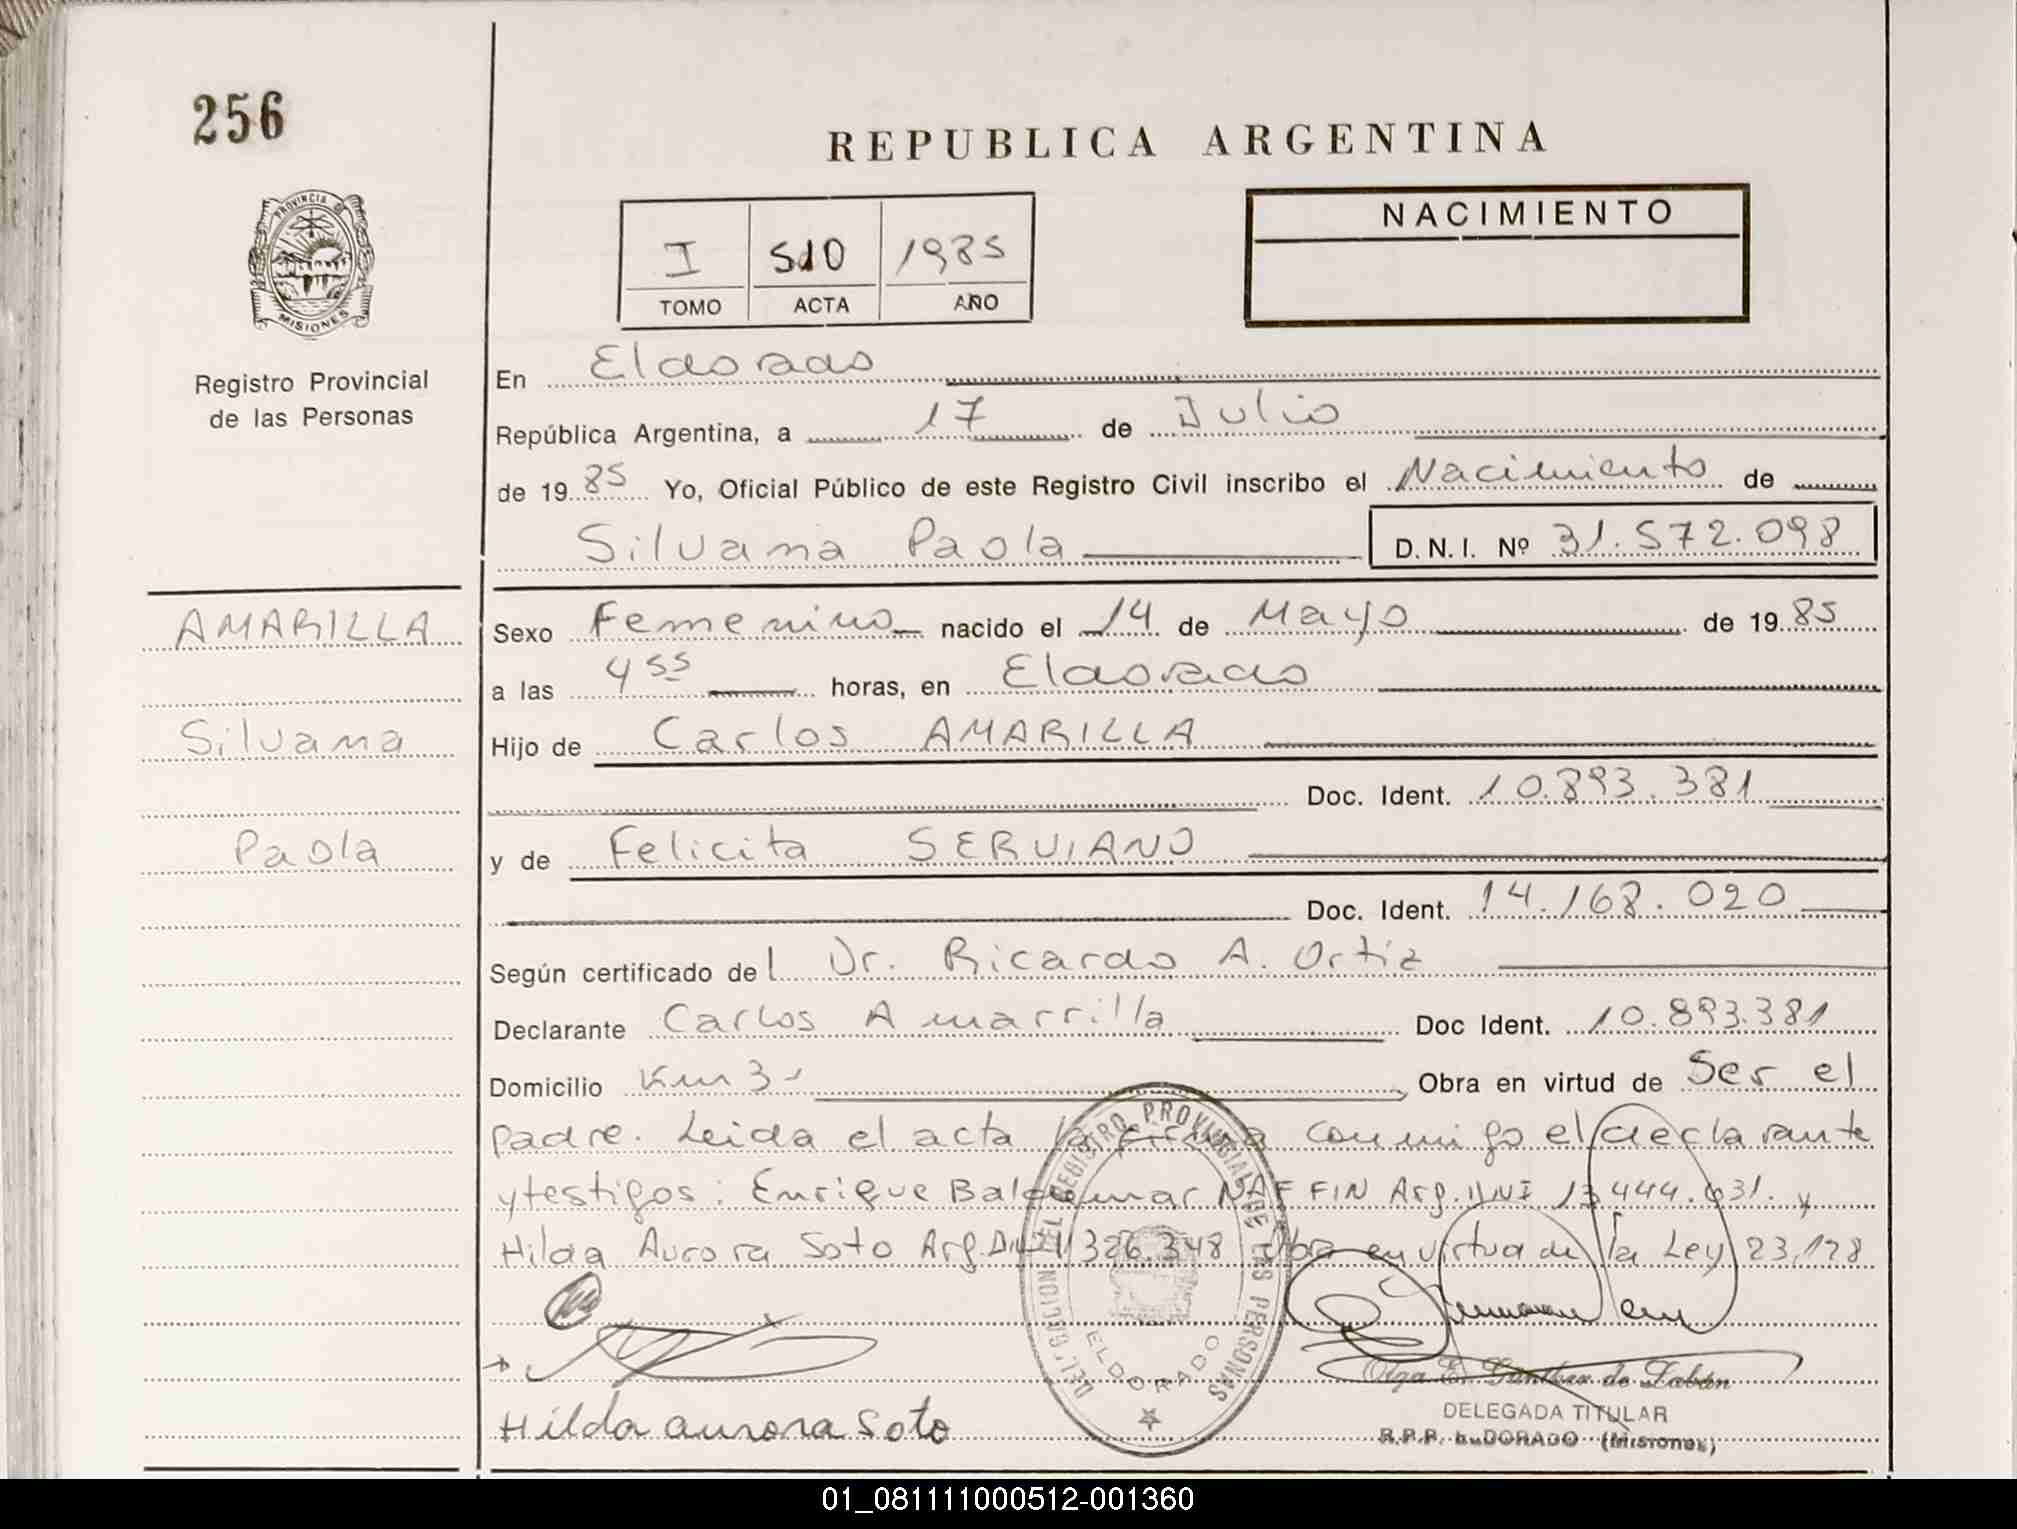 256
REPUBLICA ARGENTINA
PROVINCIA DE
MISIONES
Registro Provincial
de las Personas
I 510 1985
TOMO ACTA AÑO
NACIMIENTO
En Eldorado
República Argentina, a 17 de Julio
de 1985 Yo, Oficial Público de este Registro Civil inscribo el Nacimiento de
Silvana Paola D.N.I. Nº 31.572.098
AMARILLA
Silvana
Paola
Sexo Femenino nacido el 14 de Mayo de 1985
a las 4 55 horas, en Eldorado
Hijo de Carlos AMARILLA
Doc. Ident. 10.893.381
y de Felicita SERVIANO
Doc. Ident. 14.168.020
Según certificado del Dr. Ricardo A. Ortiz
Declarante Carlos Amarrilla Doc Ident. 10.893.381
Domicilio Km 3- Obra en virtud de Ser el
padre. Leida el acta la firma conmigo el declarante
y testigos: Enrique Baldomar NAFFIN Arg. DNI 13.444.631. y
Hilda Aurora Soto Arg. DNI 11.326.348 Obra en virtud de la Ley 23,128
Hilda aurora Soto
DELEGACION DEL REGISTRO PROVINCIAL DE LAS PERSONAS
ELDORADO
Olga E. Günther de Labán
DELEGADA TITULAR
R.P.P. ELDORADO (Misiones)
01_081111000512-001360